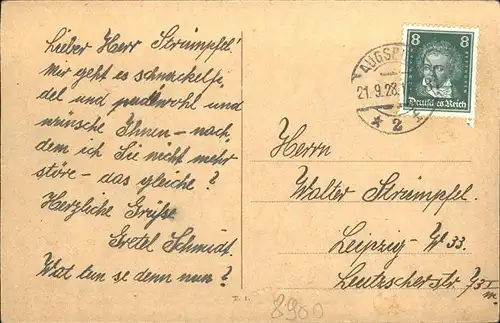 Lieber Herr Strümpfel!
Mir geht es schnuckelfi,
del und pudelwohl und
wünsche Ihnen – nach,
dem ich Sie nicht mehr
störe – das gleiche?
Herzliche Grüße
Gretel Schmidt.
Wat tun se denn nun?
8 8
Deutsches Reich
AUGSB
21.9.28.
* 2
Herrn
Walter Strümpfel.
Leipzig – W 33.
Leutzscherstr.
T. I.
8900